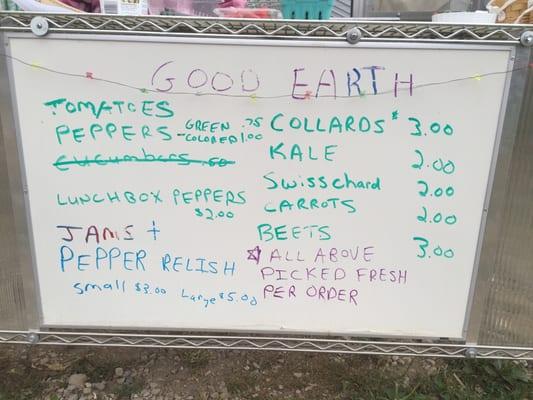 GOOD EARTH
TOMATOES
PEPPERS - GREEN .75
- COLORED 1.00
CUCUMBERS .50
LUNCHBOX PEPPERS
$2.00
JAMS +
PEPPER RELISH
Small $3.00 Large $5.00
COLLARDS* 3.00
KALE 2.00
Swisschard 2.00
CARROTS 2.00
BEETS 3.00
* ALL ABOVE
PICKED FRESH
PER ORDER